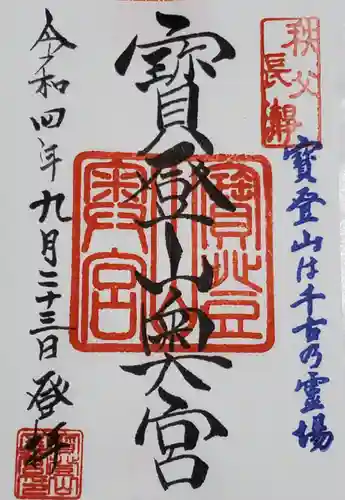 秩父
長瀞
寳登山は千古の霊場
寳登山奥宮
寳登山
奥宮
令和四年九月二十三日 登拝